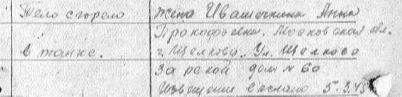 Тело сгорело
в танке.
жена Ивашечкина Анна
Прокофьевна. Московская обл.
г. Щелково. Ул. Щелково
За рекой дом № 60
Извещение выслано 5.3.45